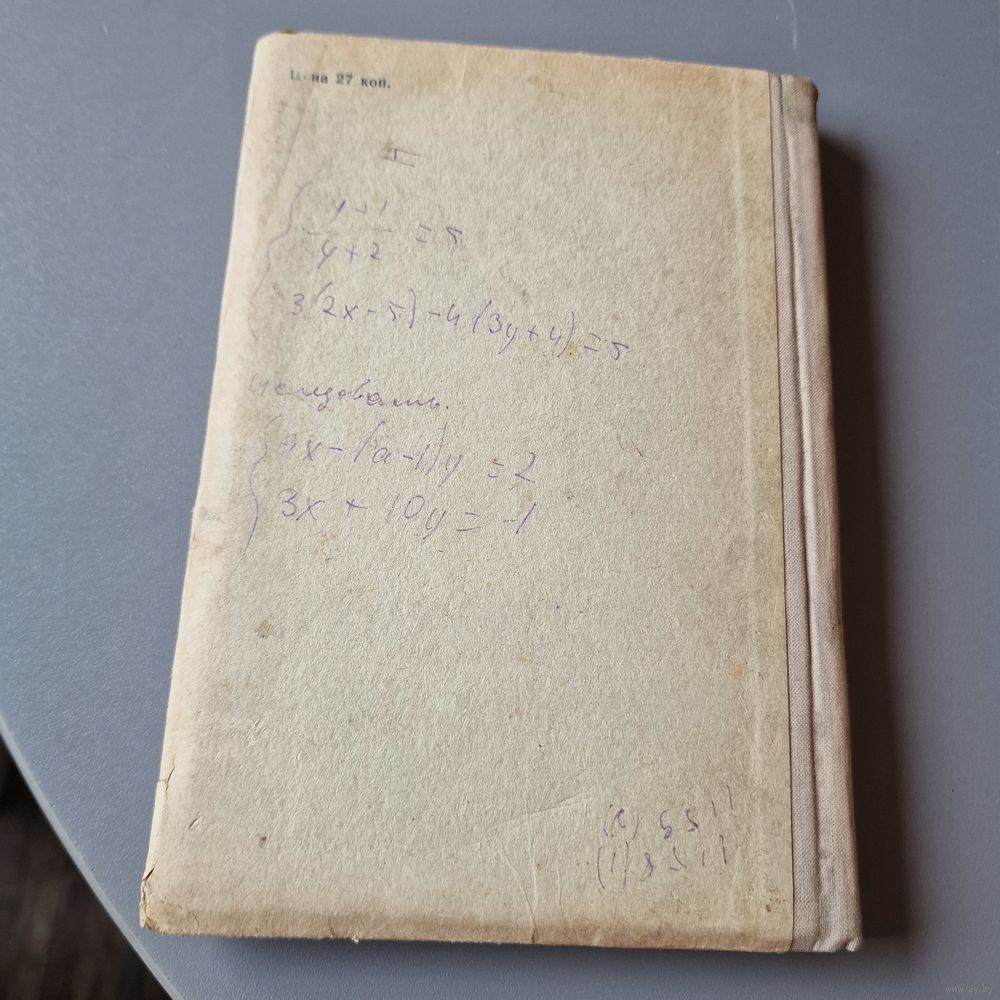 Цена 27 коп.
II
y+1
y+2 = 5
3(2x-5)-4(3y+4)=5
исследовать.
9x-(a-1)y=2
3x+10y=-1
www.ay.by